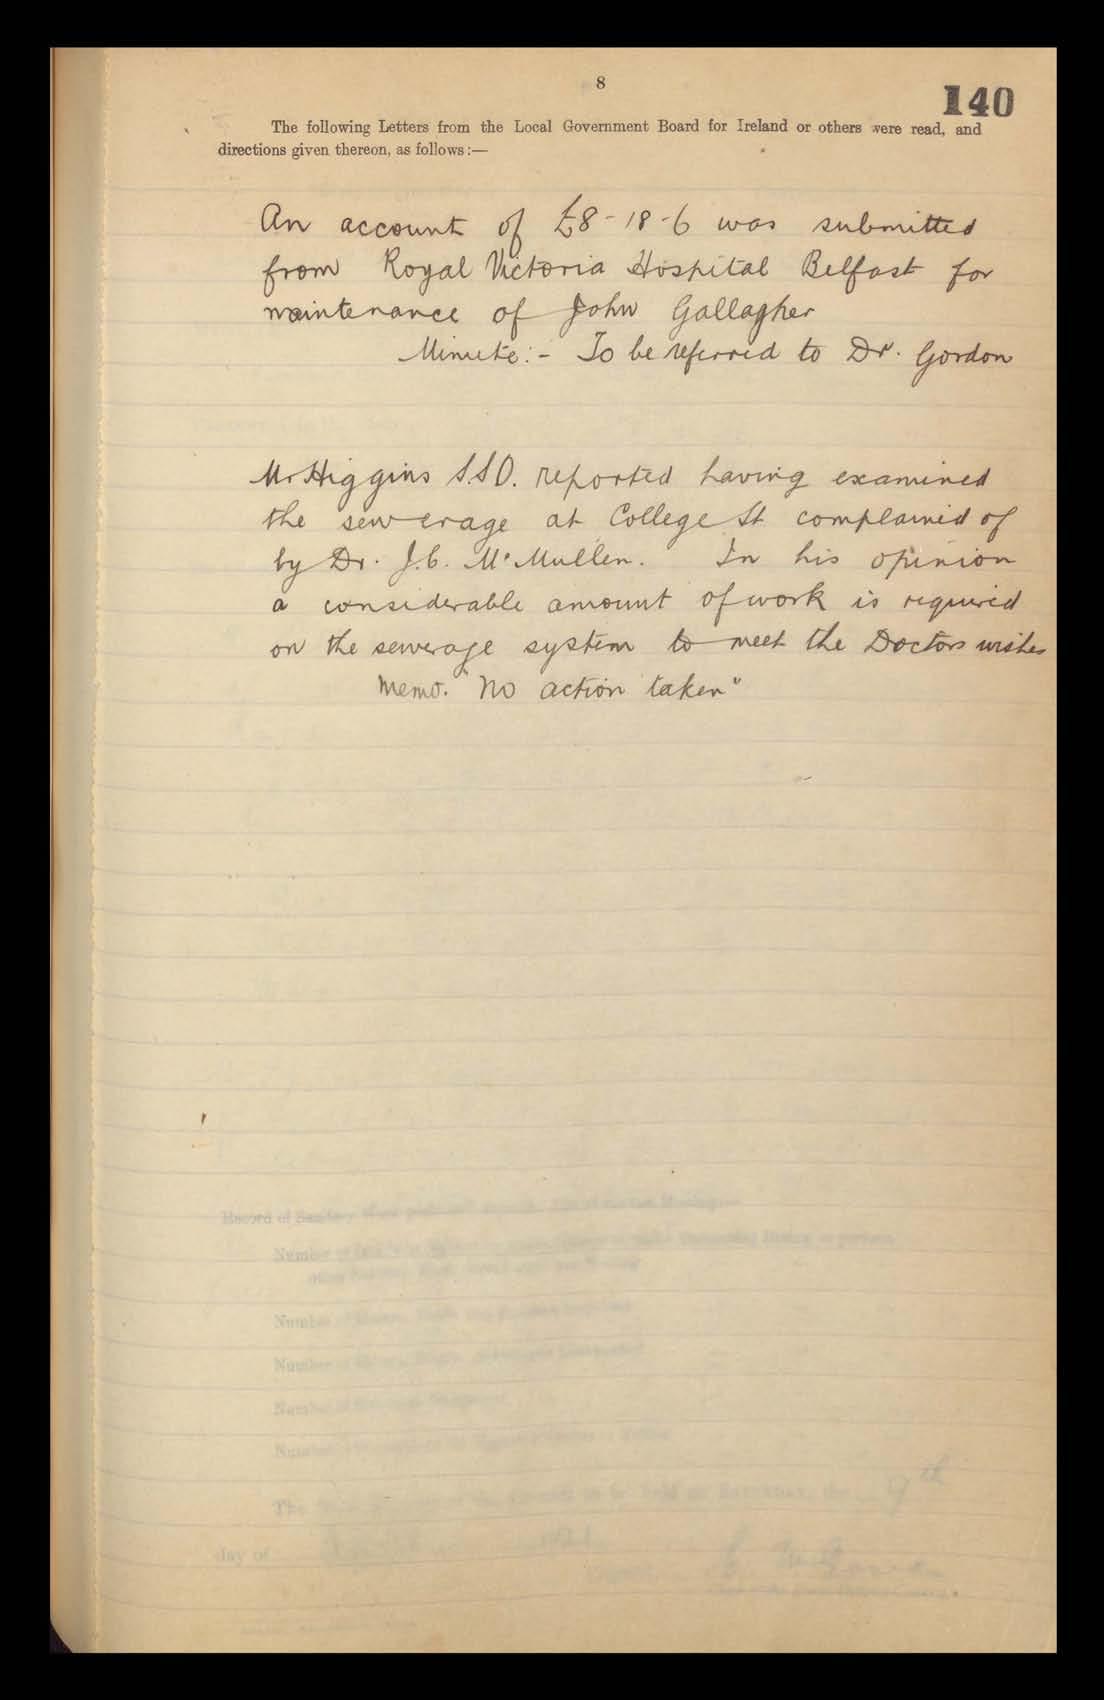 8
140
The following Letters from the Local Government Board for Ireland or others were read, and
directions given thereon, as follows:—
An account of £8-18-6 was submitted
from Royal Victoria Hospital Belfast for
maintenance of John Gallagher
Minute:- To be referred to Dr. Gordon
Mr Higgins S.S.O. reported having examined
the sewerage at College St complained of
by Dr. J.C. McMullen. In his opinion
a considerable amount of work is required
on the sewerage system to meet the Doctors wishes
Memo. "No action taken"